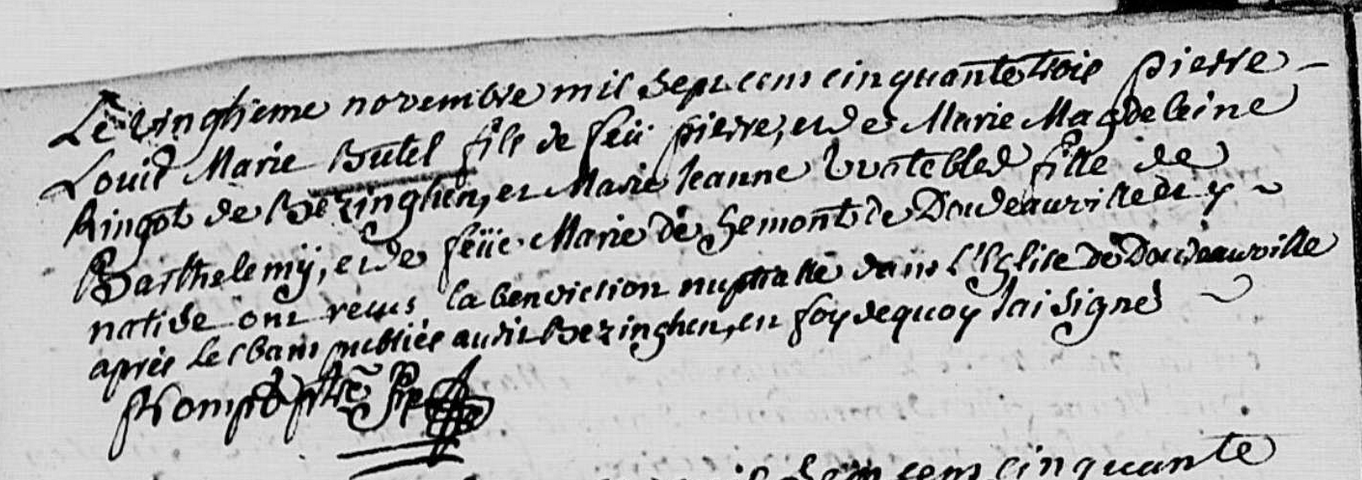 Le vingtieme novembre mil sept cent cinquante trois pierre
Louis Marie Butel fils de feü pierre, et de Marie Magdeleine
Ringot de Bezinghen, et Marie Jeanne Wattebled fille de
Barthelemÿ, et de feüe Marie de hemont de Doudeauville de y
native ont reçus la benediction nuptialle dans l'Eglise de Doudeauville
après les bans publiés audit Bezinghen, en foy de quoy J'ai signé
ptre
cent cinquante